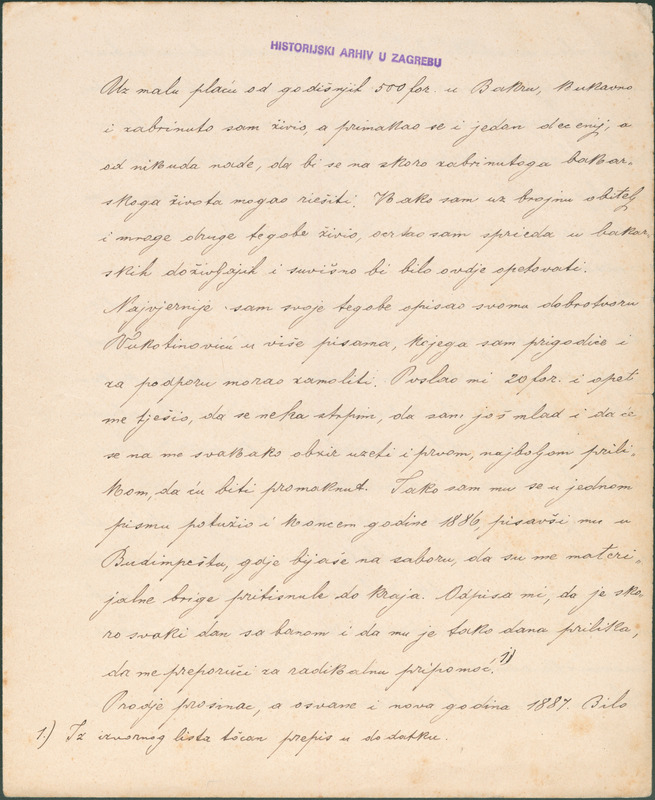 HISTORIJSKI ARHIV U ZAGREBU
Uz malu plaću od godišnjih 500 for. u Bakru, kukavno
i zabrinuto sam živio, a primakao se i jedan decenij, a
od nikuda nade, da bi se na skoro zabrinutoga bakar-
skoga života mogao riešiti. Kako sam uz brojnu obitelj
i mnoge druge tegobe živio, ocrtao sam sprieda u bakar-
skih doživljajih i suvišno bi bilo ovdje opetovati.
Najvjernije sam svoje tegobe opisao svomu dobrotvoru
Vukotinoviću u više pisama, kojega sam prigodice i
za podporu morao zamoliti. Poslao mi 20 for. i opet
me tješio, da se neka strpim, da sam još mlad i da će
se na me svakako obzir uzeti i prvom, najboljom prili-
kom, da ću biti promaknut. Tako sam mu se u jednom
pismu potužio i koncem godine 1886, pisavši mu u
Budimpeštu, gdje bijaše na saboru, da su me materi-
jalne brige pritisnule do kraja. Odpisa mi, da je sko-
ro svaki dan sa banom i da mu je tako dana prilika,
da me preporuči za radikalnu pripomoć. 1)
Prodje prosinac, a osvane i nova godina 1887. Bilo
1.) Iz izvornog lista točan prepis u dodatku.